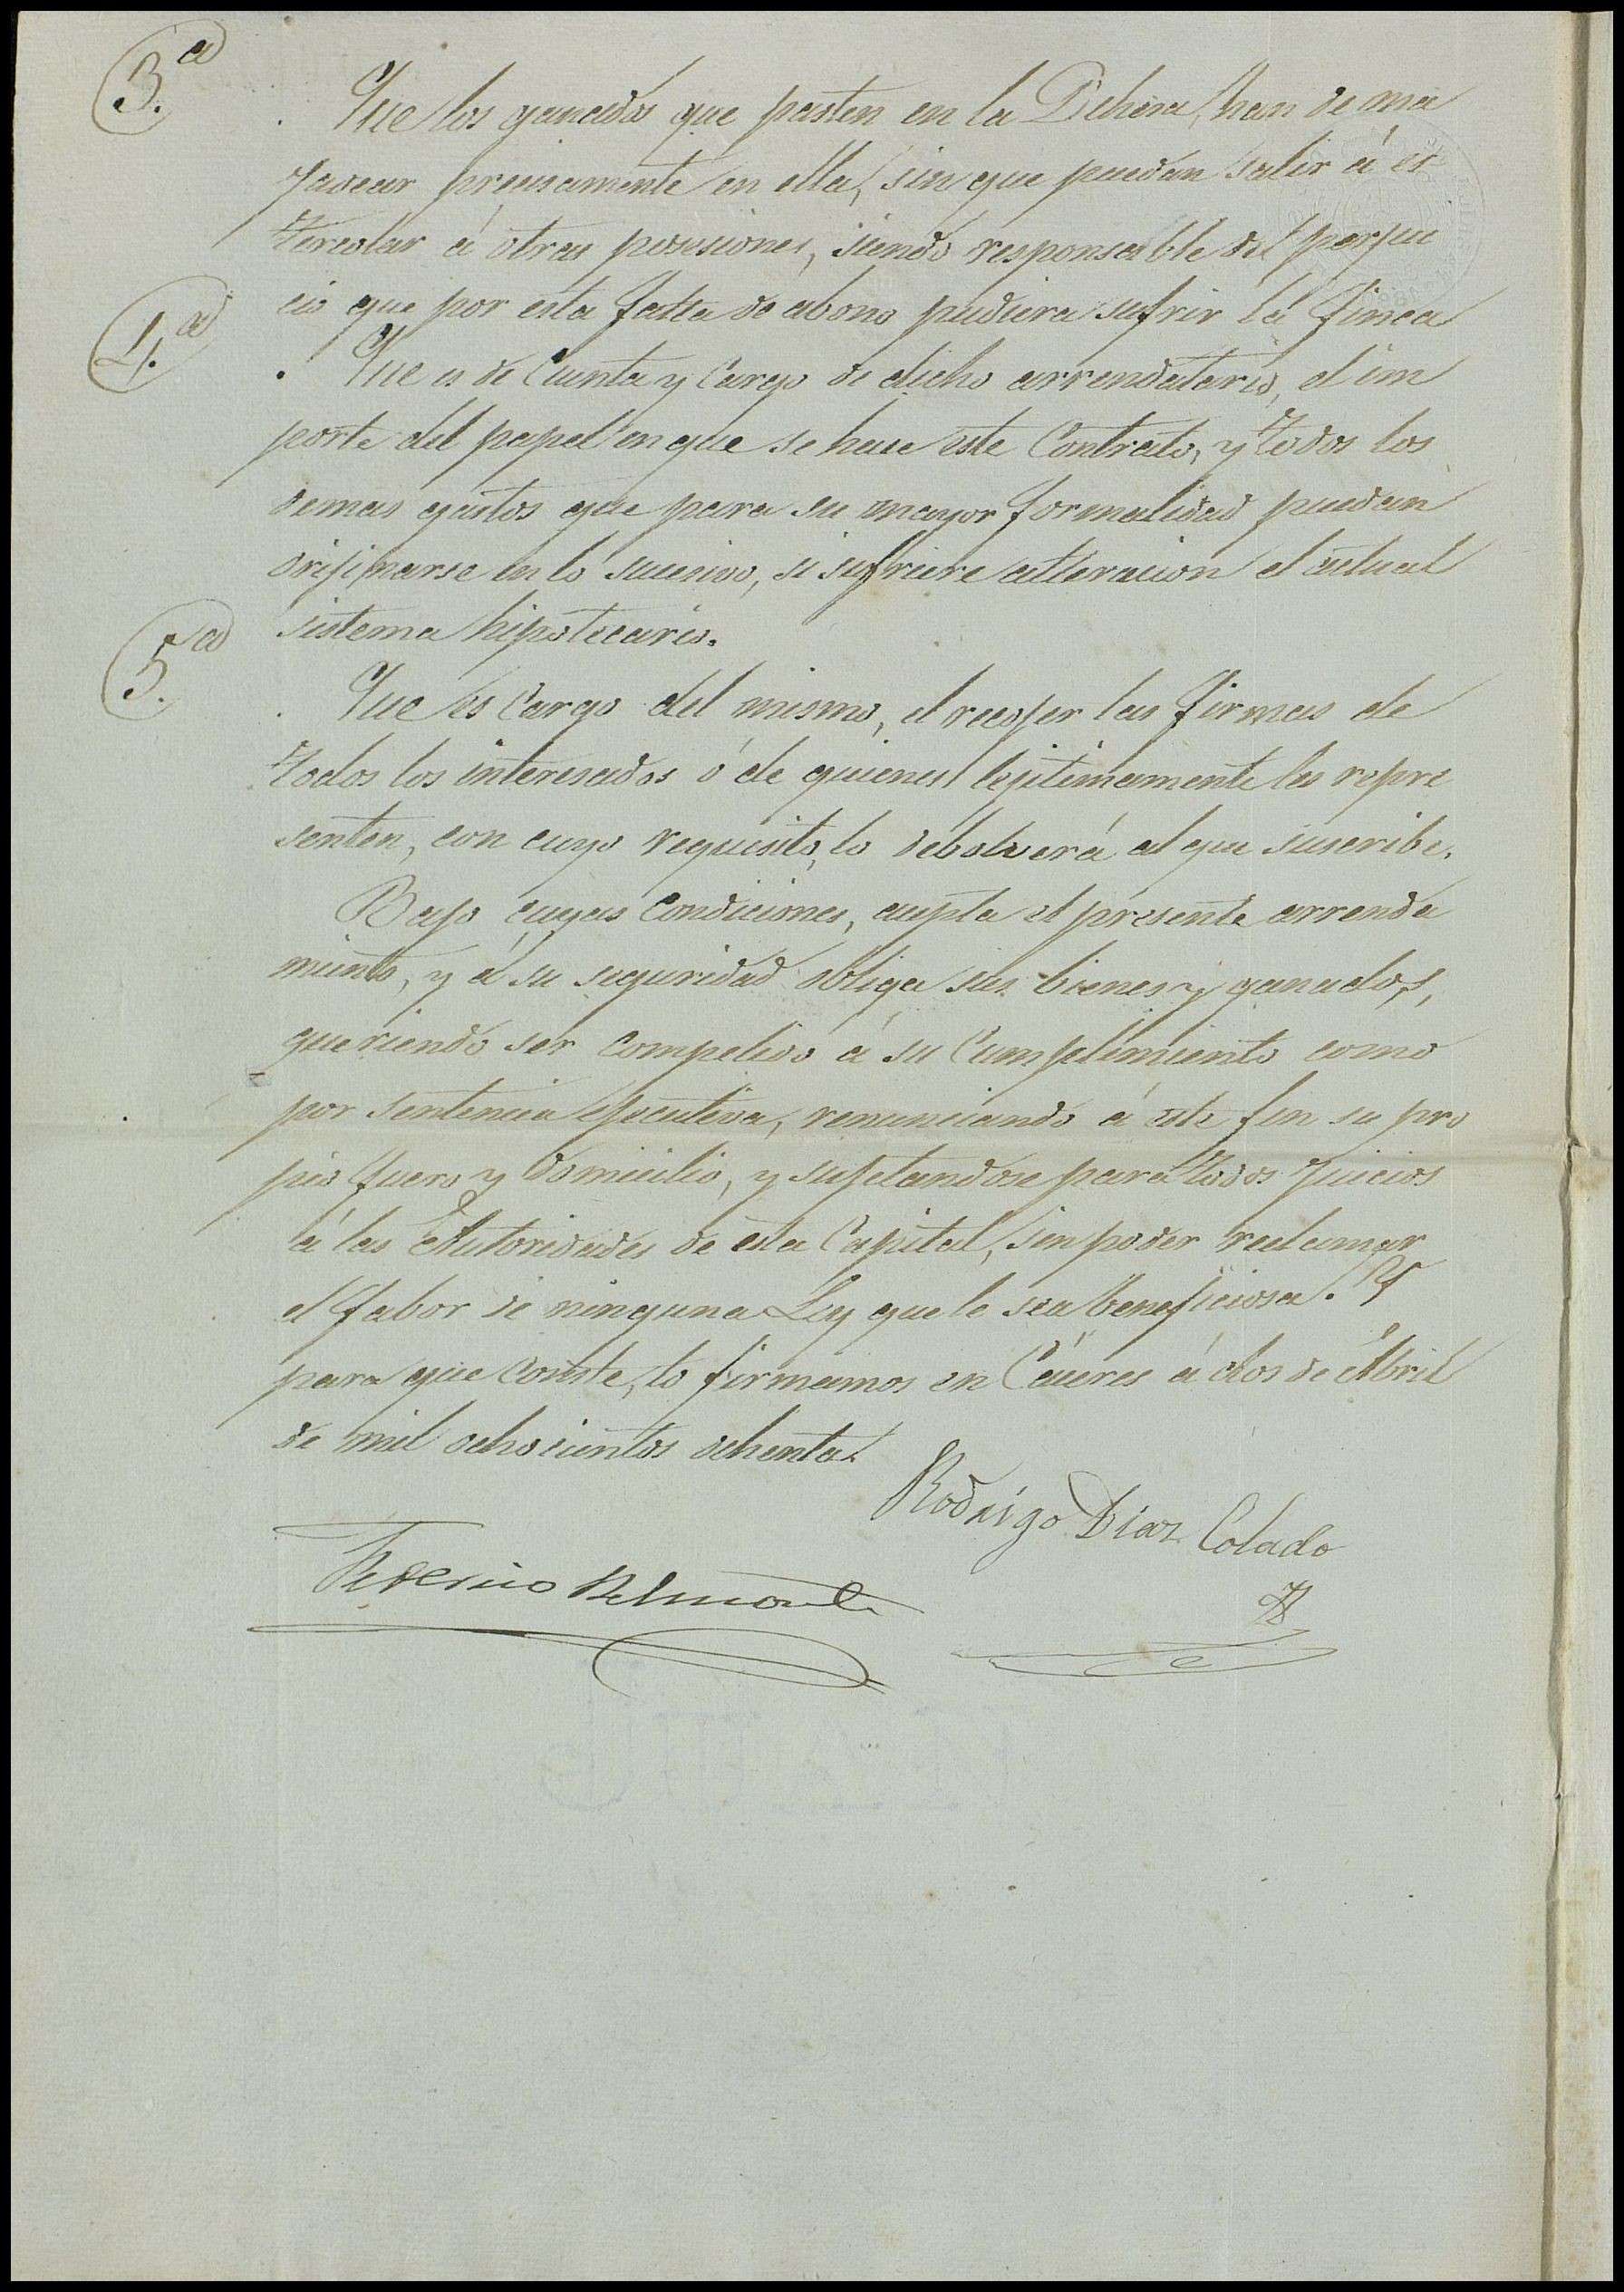 3.ª
Que los ganados que pasten en la Dehesa, han de ma
jadear precisamente en ella, sin que puedan salir á es
tercolar á otras posesiones, siendo responsable del perjui
cio que por esta falta de abono pudiera sufrir la finca
4.ª
Que es de Cuenta y Cargo de dicho arrendatario, el im
porte del papel en que se hace este Contrato, y todos los
demas gastos que para su mayor formalidad puedan
orijinarse en lo sucesivo, si sufriere alteracion el actual
sistema hipotecario.
5.ª
Que es Cargo del mismo, el recojer las firmas de
todos los interesados ó de quienes lejitimamente les repre
senten, con cuyo requisito, lo debolverá al que suscribe.
Bajo cuyas Condiciones, acepta el presente arrenda
miento, y á su seguridad obliga sus bienes y ganados,
queriendo ser Compelido á su Cumplimiento como
por sentencia ejecutiva, renunciando á este fin su pro
pio fuero y domicilio, y sujetandose para todos juicios
á las Autoridades de esta Capital, sin poder reclamar
el fabor de ninguna Ley que le sea beneficiosa. Y
para que Conste, lo firmamos en Cáceres á dos de Abril
de mil ochocientos ochenta.
Rodrigo Diaz Colado
Federico Belmonte